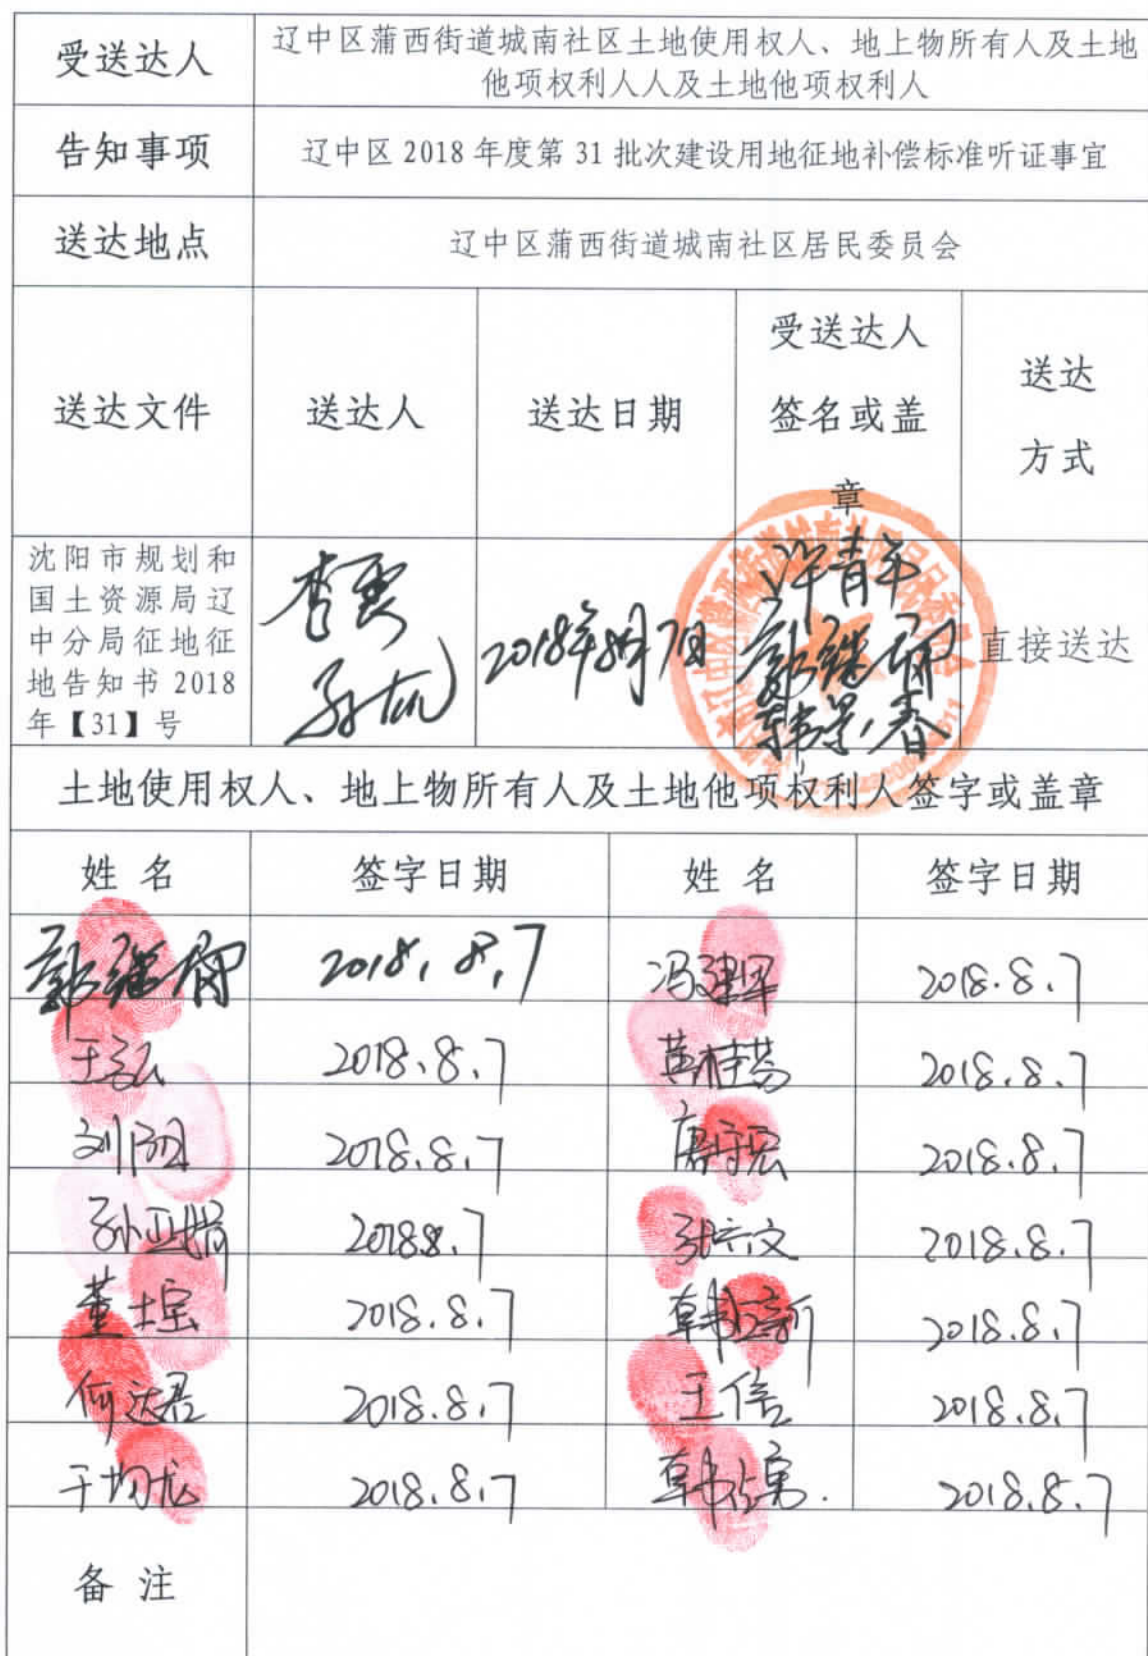 受送达人
辽中区蒲西街道城南社区土地使用权人、地上物所有人及土地
他项权利人人及土地他项权利人
告知事项
辽中区 2018 年度第 31 批次建设用地征地补偿标准听证事宜
送达地点
辽中区蒲西街道城南社区居民委员会
送达文件
送达人
送达日期
受送达人
签名或盖
章
送达
方式
沈阳市规划和
国土资源局辽
中分局征地征
地告知书 2018
年【31】号
2018年8月7日
许青平
韩景春
直接送达
土地使用权人、地上物所有人及土地他项权利人签字或盖章
姓 名 签字日期 姓 名 签字日期
2018.8.7 2018.8.7
王弘 2018.8.7 黄桂芬 2018.8.7
刘阳 2018.8.7 2018.8.7
孙亚娟 2018.8.7 张六文 2018.8.7
董士宝 2018.8.7 2018.8.7
何达君 2018.8.7 王信 2018.8.7
于均龙 2018.8.7 2018.8.7
备 注